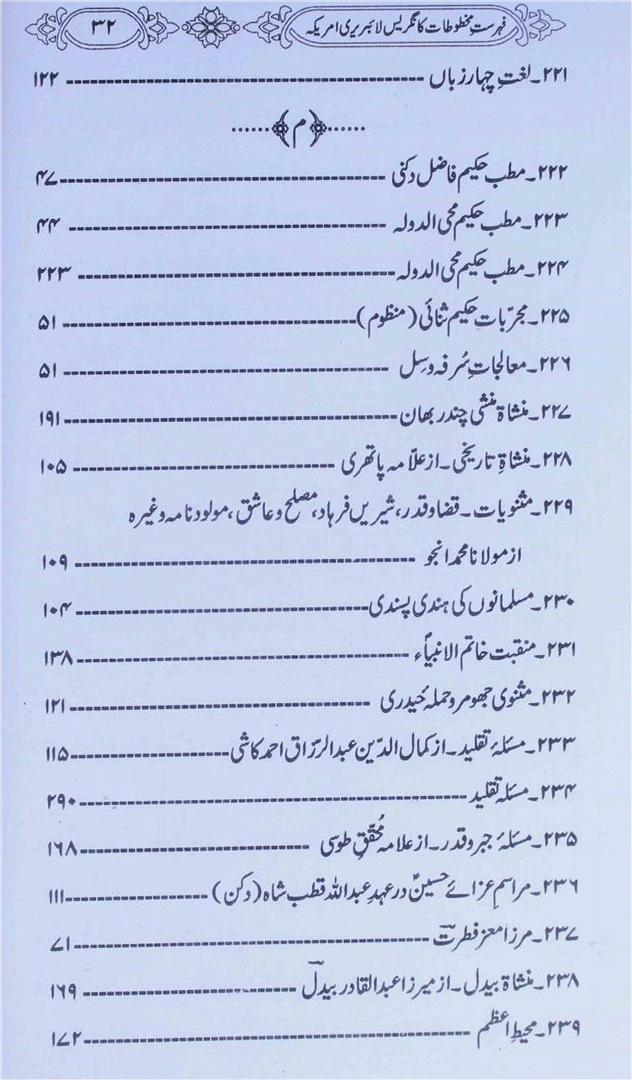 فہرستِ مخطوطات کانگریس لائبریری امریکہ
۳۲
۲۲۱۔ لغتِ چہار زباں ---------- ۱۲۲
......﴿م﴾......
۲۲۲۔ مطب حکیم فاضل دکنی ---------- ۴۷
۲۲۳۔ مطب حکیم محی الدولہ ---------- ۴۴
۲۲۴۔ مطب حکیم محی الدولہ ---------- ۲۲۳
۲۲۵۔ مجرّباتِ حکیم ثنائی (منظوم) ---------- ۵۱
۲۲۶۔ معالجاتِ سُرفہ و سِل ---------- ۵۱
۲۲۷۔ منشاۃ منشی چندر بھان ---------- ۱۹۱
۲۲۸۔ منشاۃِ تاریخی۔ از علّامہ پاتھری ---------- ۱۰۵
۲۲۹۔ مثنویات۔ قضا و قدر، شیریں فرہاد، مصلح و عاشق، مولود نامہ وغیرہ
از مولانا محمد انجو ---------- ۱۰۹
۲۳۰۔ مسلمانوں کی ہندی پسندی ---------- ۱۰۴
۲۳۱۔ منقبت خاتم الانبیاؐء ---------- ۱۳۸
۲۳۲۔ مثنوی جھومر و حملہ حیدری ---------- ۱۲۱
۲۳۳۔ مسئلۂ تقلید۔ از کمال الدّین عبدالرّزاق احمد کاشی ---------- ۱۱۵
۲۳۴۔ مسئلہ تقلید ---------- ۲۹۰
۲۳۵۔ مسئلۂ جبر و قدر۔ از علامہ مُحقّقِ طوسی ---------- ۱۶۸
۲۳۶۔ مراسمِ عزائے حسینؑ در عہدِ عبداللہ قطب شاہ (دکن) ---------- ۱۱۱
۲۳۷۔ مرزا معز فطرتؔ ---------- ۷۱
۲۳۸۔ منشاۃ بیدل۔ از میرزا عبدالقادر بیدلؔ ---------- ۱۶۹
۲۳۹۔ محیطِ اعظم ---------- ۱۷۲